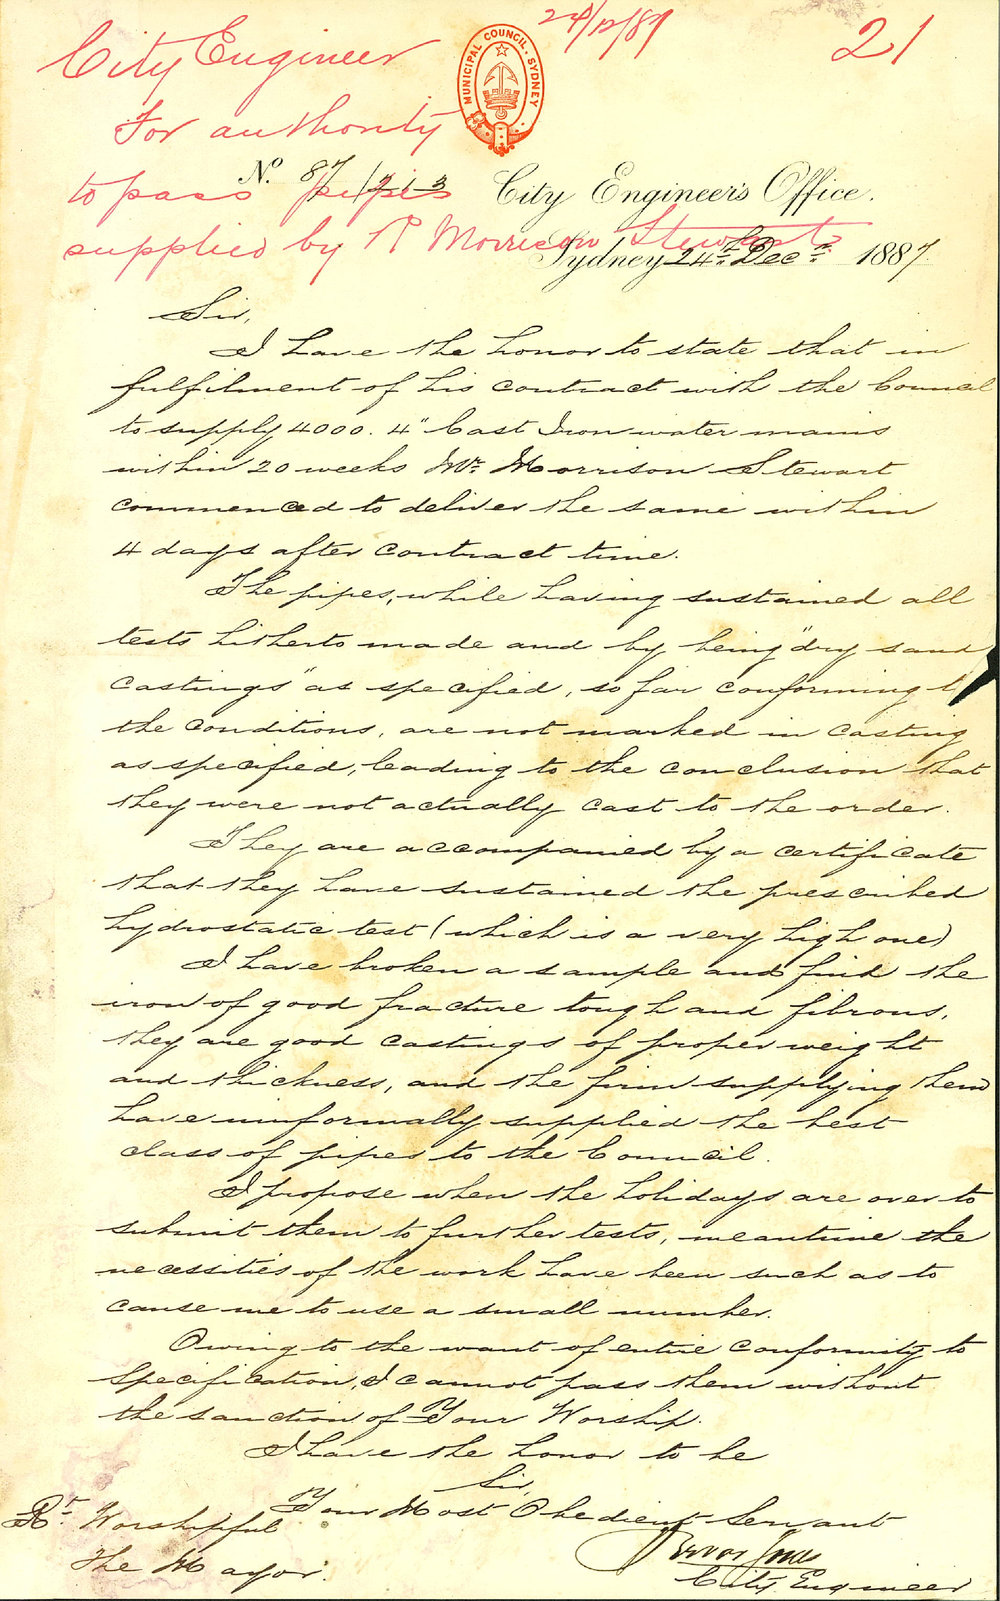 24/12/87
21
City Engineer
MUNICIPAL COUNCIL. SYDNEY
For authority
to pass pipes
supplied by R Morrison Stewart
No. 87/1213
City Engineer's Office.
Sydney 24th Decr 1887.
Sir,
I have the honor to state that in
fulfilment of his contract with the Council
to supply 4000. 4" Cast Iron water mains
within 20 weeks Mr. Morrison Stewart
commenced to deliver the same within
4 days after contract time.
The pipes, while having sustained all
tests hitherto made and by being "dry sand
castings" as specified, so far conforming to
the conditions, are not marked in casting
as specified, leading to the conclusion that
they were not actually cast to the order.
They are accompanied by a certificate
that they have sustained the prescribed
hydrostatic test (which is a very high one)
I have broken a sample and find the
iron of good fracture tough and fibrous,
they are good castings of proper weight
and thickness, and the firm supplying them
have uniformally supplied the best
class of pipes to the Council.
I propose when the holidays are over to
submit them to further tests, meantime the
necessities of the work have been such as to
cause me to use a small number.
Owing to the want of entire conformity to
Specification, I cannot pass them without
the sanction of Your Worship.
I have the honor to be
Sir,
Your Most Obedient Servant
Trevor Jones
City Engineer
Rt. Worshipful
The Mayor.